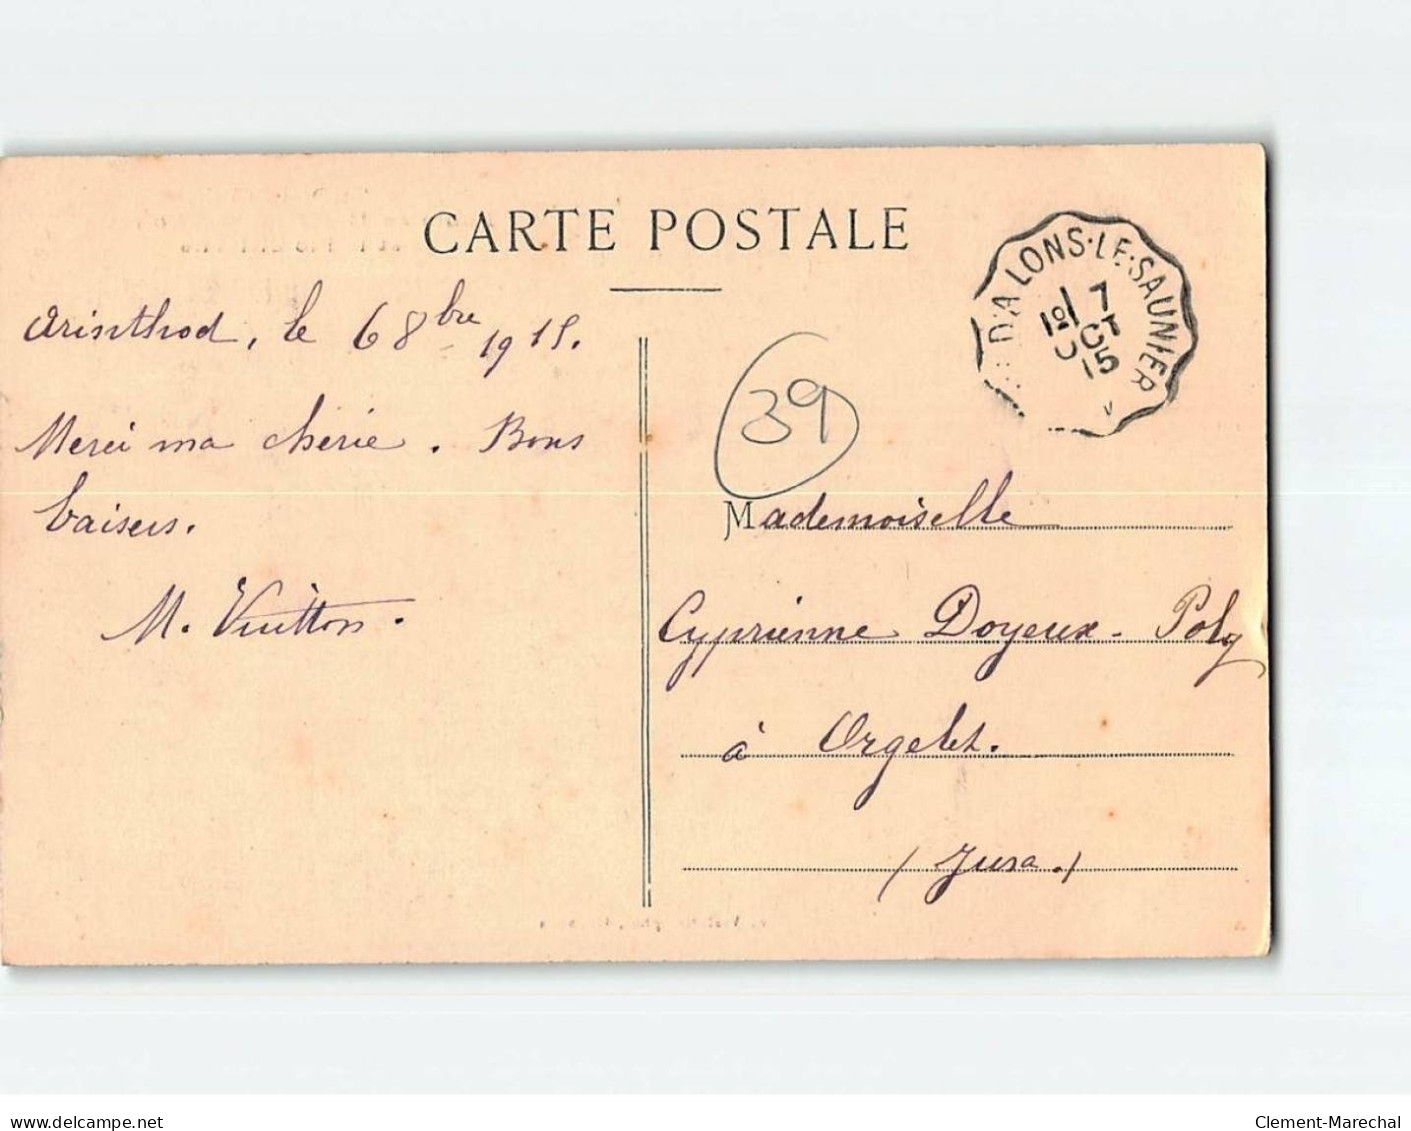 CARTE POSTALE
D'A LONS-LE-SAUNIER
1º/ 7
OCT
15
Arinthod, le 6 8bre 1915.
39
Merci ma chérie. Bons
baisers.
M. Vuitton.
Mademoiselle
Cyprienne Doyeux-Poly
à Orgelet.
(Jura.)
delcampe.net
Clement-Marechal